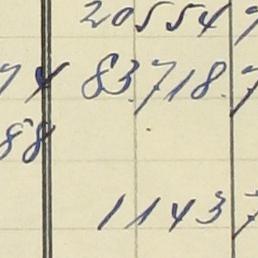 20554 7
74 83718 7
88
1143 7